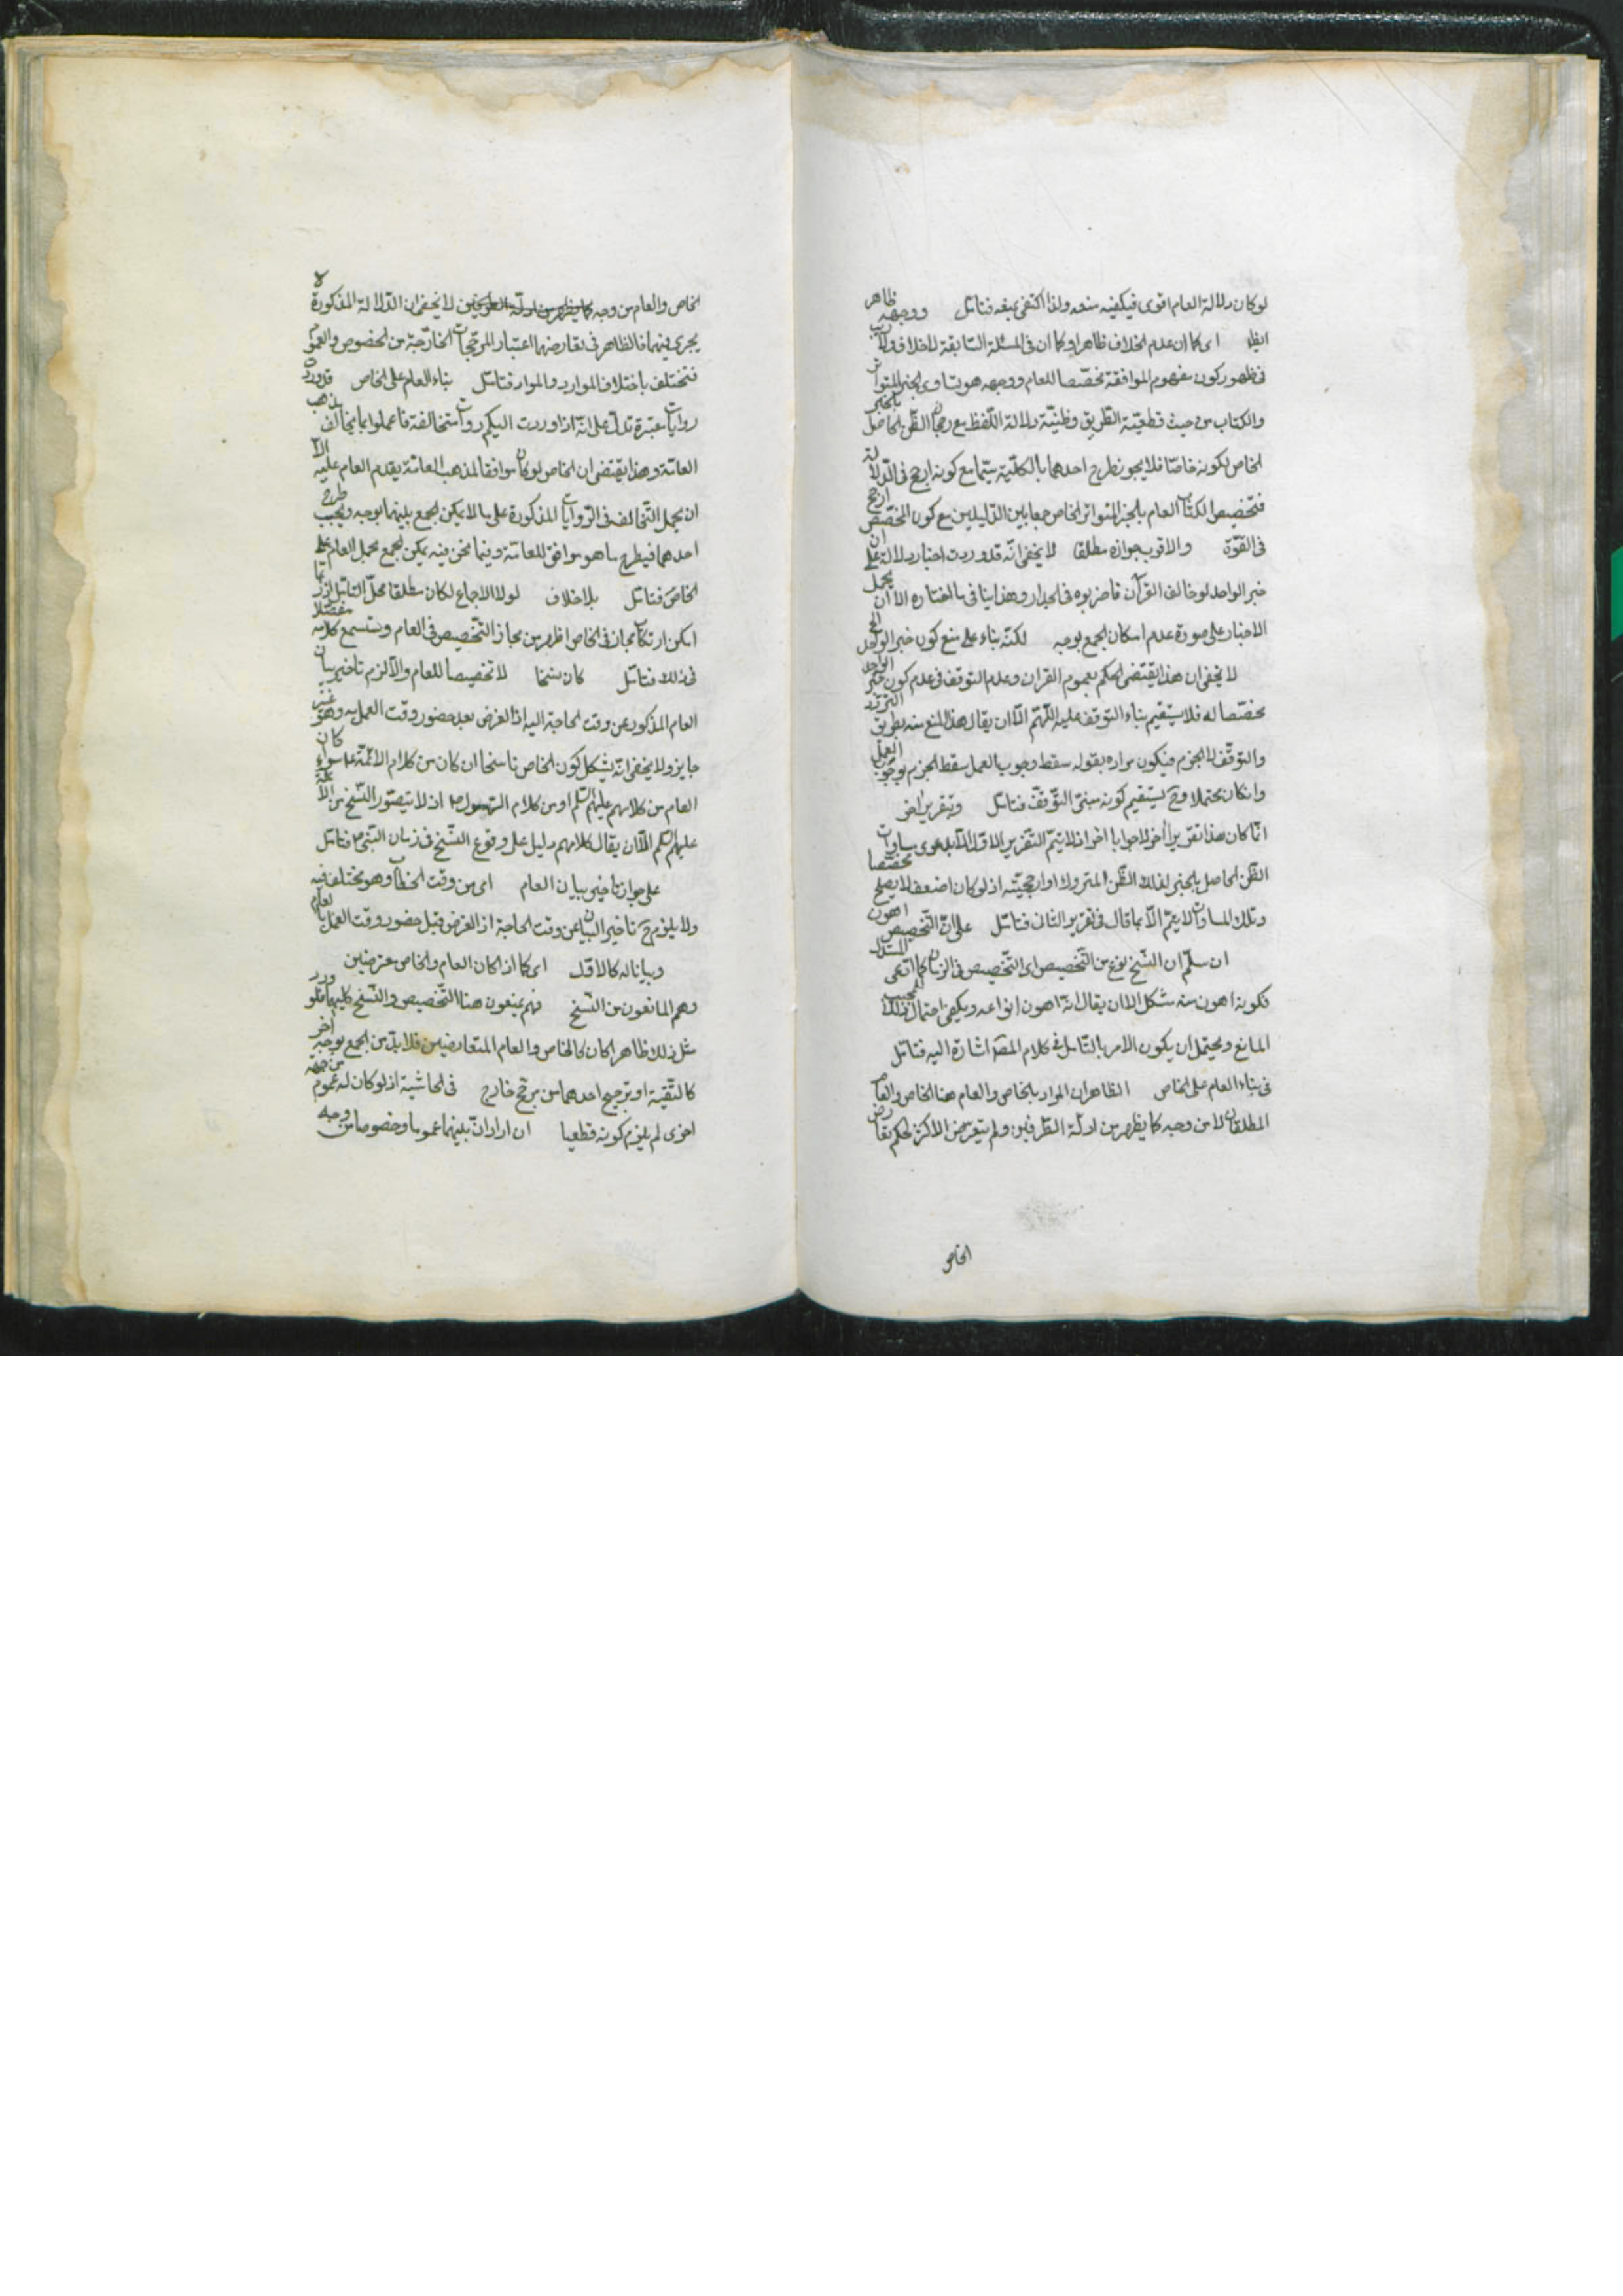 لو كان دلالة العام اقوى فيكفيه منعه ولذا اكتفى بمنعه فتامل ووجهه ظاهر
ايظ اى كما ان عدم الخلاف ظاهر او كما ان فى المسئلة السابقة لا خلاف ولا ريب
فى ظهور كون مفهوم الموافقة مخصصا للعام ووجهه هو تساوى الخبر المتواتر
والكتاب من حيث قطعية الطريق وظنية دلالة اللفظ مع رجحان الظن الحاصل بالخبر
الخاص لكونه خاصا فلا يجوز طرح احدهما بالكلية سيما مع كونه ارجح فى الدلالة
فتخصيص الكتاب العام بالخبر المتواتر الخاص جمعا بين الدليلين مع كون المخصص ارجح
فى القوة والاقرب جوازه مطلقا لا يخفى انه قد وردت اخبار دالة على ان
خبر الواحد لو خالف القرآن فاضربوه فى الجدار وهذا ينافى ما اختاره الا ان يحمل
الاخبار على صورة عدم امكان الجمع بوجه لكنه بناء على منع كون خبر الواحد الخ
لا يخفى ان هذا يقتضى الحكم بعموم القران وعدم التوقف فى عدم كون خبر الواحد
مخصصا له فلا يستقيم بناء التوقف عليه اللهم الا ان يقال هذا المنع منه بطريق التردد
والتوقف لا الجزم فيكون مراده بقوله سقط وجوب العمل سقط الجزم بوجوب العمل
وانكان محتملا وح يستقيم كونه مبنى التوقف فتامل وتقرير اخر
انما كان هذا تقريرا آخر لا جوابا اخر اذ لا يتم التقرير الاول الا بدعوى مساوات
الظن الحاصل بالخبر لذلك الظن المتروك او ارجحيته اذ لو كان اضعف لا يصلح مخصصا
وتلك المساوات لا يتم الا بما قال فى تقرير الثانى فتامل على ان التخصيص اهون
ان سلم ان النسخ نوع من التخصيص اى التخصيص فى الزمان كما ادعى المستدل
فكونه اهون منه مشكل الا ان يقال انه اهون انواعه ويكفى احتمال ذلك المجيب
المانع ويحتمل ان يكون الامر بالتامل فى كلام المصه اشارة اليه فتامل
فى بناء العام على الخاص الظاهر ان المراد بالخاص والعام هنا الخاص والعام
المطلقان لا من وجه كما يظهر من ادلة الطرفين ولم يتعرض الاكثر لحكم تعارض
الخاص
الخاص والعام من وجه كما يظهر من ادلة الطرفين لا يخفى ان الدلالة المذكورة لا
يجرى فيهما فالظاهر فى تعارضهما اعتبار المرجحات الخارجة من الخصوص والعموم
فتختلف باختلاف الموارد والمواد فتامل بناء العام على الخاص قد وردت
روايات معتبرة تدل على انه اذا وردت اليكم روايات متخالفة فاعملوا بما يخالف مذهب
العامة وهذا يقتضى ان الخاص لو كان موافقا لمذهب العامة يقدم العام عليه الا
ان يحمل التخالف فى الروايات المذكورة على ما لا يمكن الجمع بينهما بوجه ويجب طرح
احدهما فيطرح ما هو موافق للعامة وفيما نحن فيه يمكن الجمع بحمل العام على
الخاص فتامل بلا خلاف لولا الاجماع لكان مطلقا محل التامل اذ ربما
امكن ارتكاب مجاز فى الخاص اظهر من مجاز التخصيص فى العام وستسمع كلامه مفصلا
فى ذلك فتامل كان نسخا لا تخصيصا للعام والا لزم تاخير بيان
العام المذكور عن وقت الحاجة اليه اذ الغرض بعد حضور وقت العمل به وهو غير
جايز ولا يخفى انه يشكل كون الخاص ناسخا ان كان من كلام الائمة ع سواء كان
العام من كلامهم عليهم السلم او من كلام الرسول ص اذ لا يتصور النسخ من الائمة
عليهم السلم الا ان يقال كلامهم دليل على وقوع النسخ فى زمان النبى ص فتامل
على جواز تاخير بيان العام اى من وقت الخطاب وهو مختلف فيه
ولا يلزم ح تاخير البيان عن وقت الحاجة اذ الغرض قبل حضور وقت العمل بالعام
وبيانا له كالاول اى كما اذا كان العام والخاص مقترنين
وهم المانعون من النسخ فهم يمنعون هنا التخصيص والنسخ كليهما فلو ورد
مثل ذلك ظاهرا كان كالخاص والعام المتعارضين فلا بد من الجمع بوجه آخر
كالتقية او ترجيح احدهما من مرجح خارج فى الحاشية اذ لو كان له عموم من جهة
اخرى لم يلزم كونه قطعيا ان اراد ان بينهما عموما وخصوصا من وجه